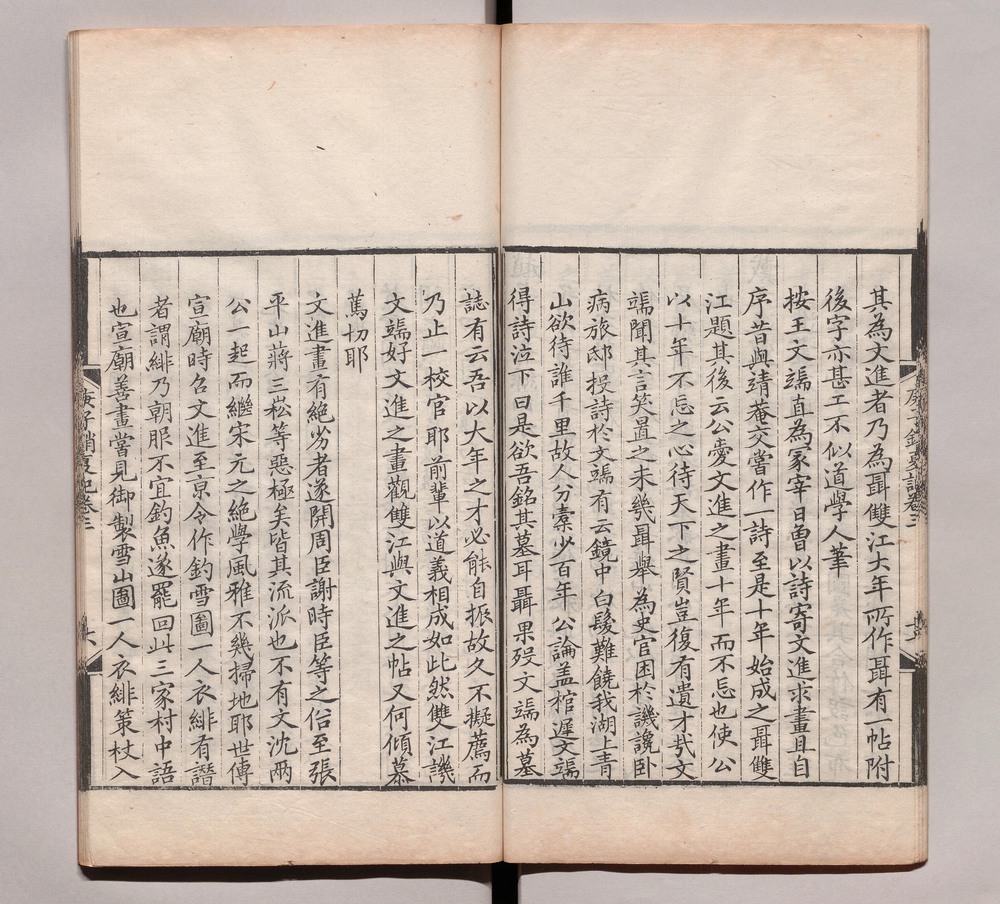 其為文進者乃為聶雙江大年所作聶有一帖附
後字亦甚工不似道學人筆
按王文端直為冢宰日曽以詩寄文進求畫且自
序昔與靖菴交嘗作一詩至是十年始成之聶雙
江題其後云公愛文進之畫十年而不忘也使公
以十年不忘之心待天下之賢豈復有遺才㢤文
端聞其言笑置之未幾聶舉為史官困於譏讒卧
病旅邸投詩於文端有云鏡中白髮難饒我湖上青
山欲待誰千里故人分槖少百年公論盖棺遲文端
得詩泣下曰是欲吾銘其墓耳聶果殁文端為墓
誌有云吾以大年之才必能自振故久不擬薦而
乃止一校官耶前輩以道義相成如此然雙江譏
文端好文進之畫觀雙江與文進之帖又何傾慕
篤切耶
文進畫有絕劣者遂開周臣謝時臣等之俗至張
平山蔣三崧等惡極矣皆其流派也不有文沈兩
公一起而繼宋元之絕學風雅不幾掃地耶世傳
宣廟時名文進至京令作釣雪圖一人衣緋有譖
者謂緋乃朝服不宜釣魚遂罷回此三家村中語
也宣廟善畫嘗見御製雪山圖一人衣緋策杖入
庚子銷夏記卷三
六